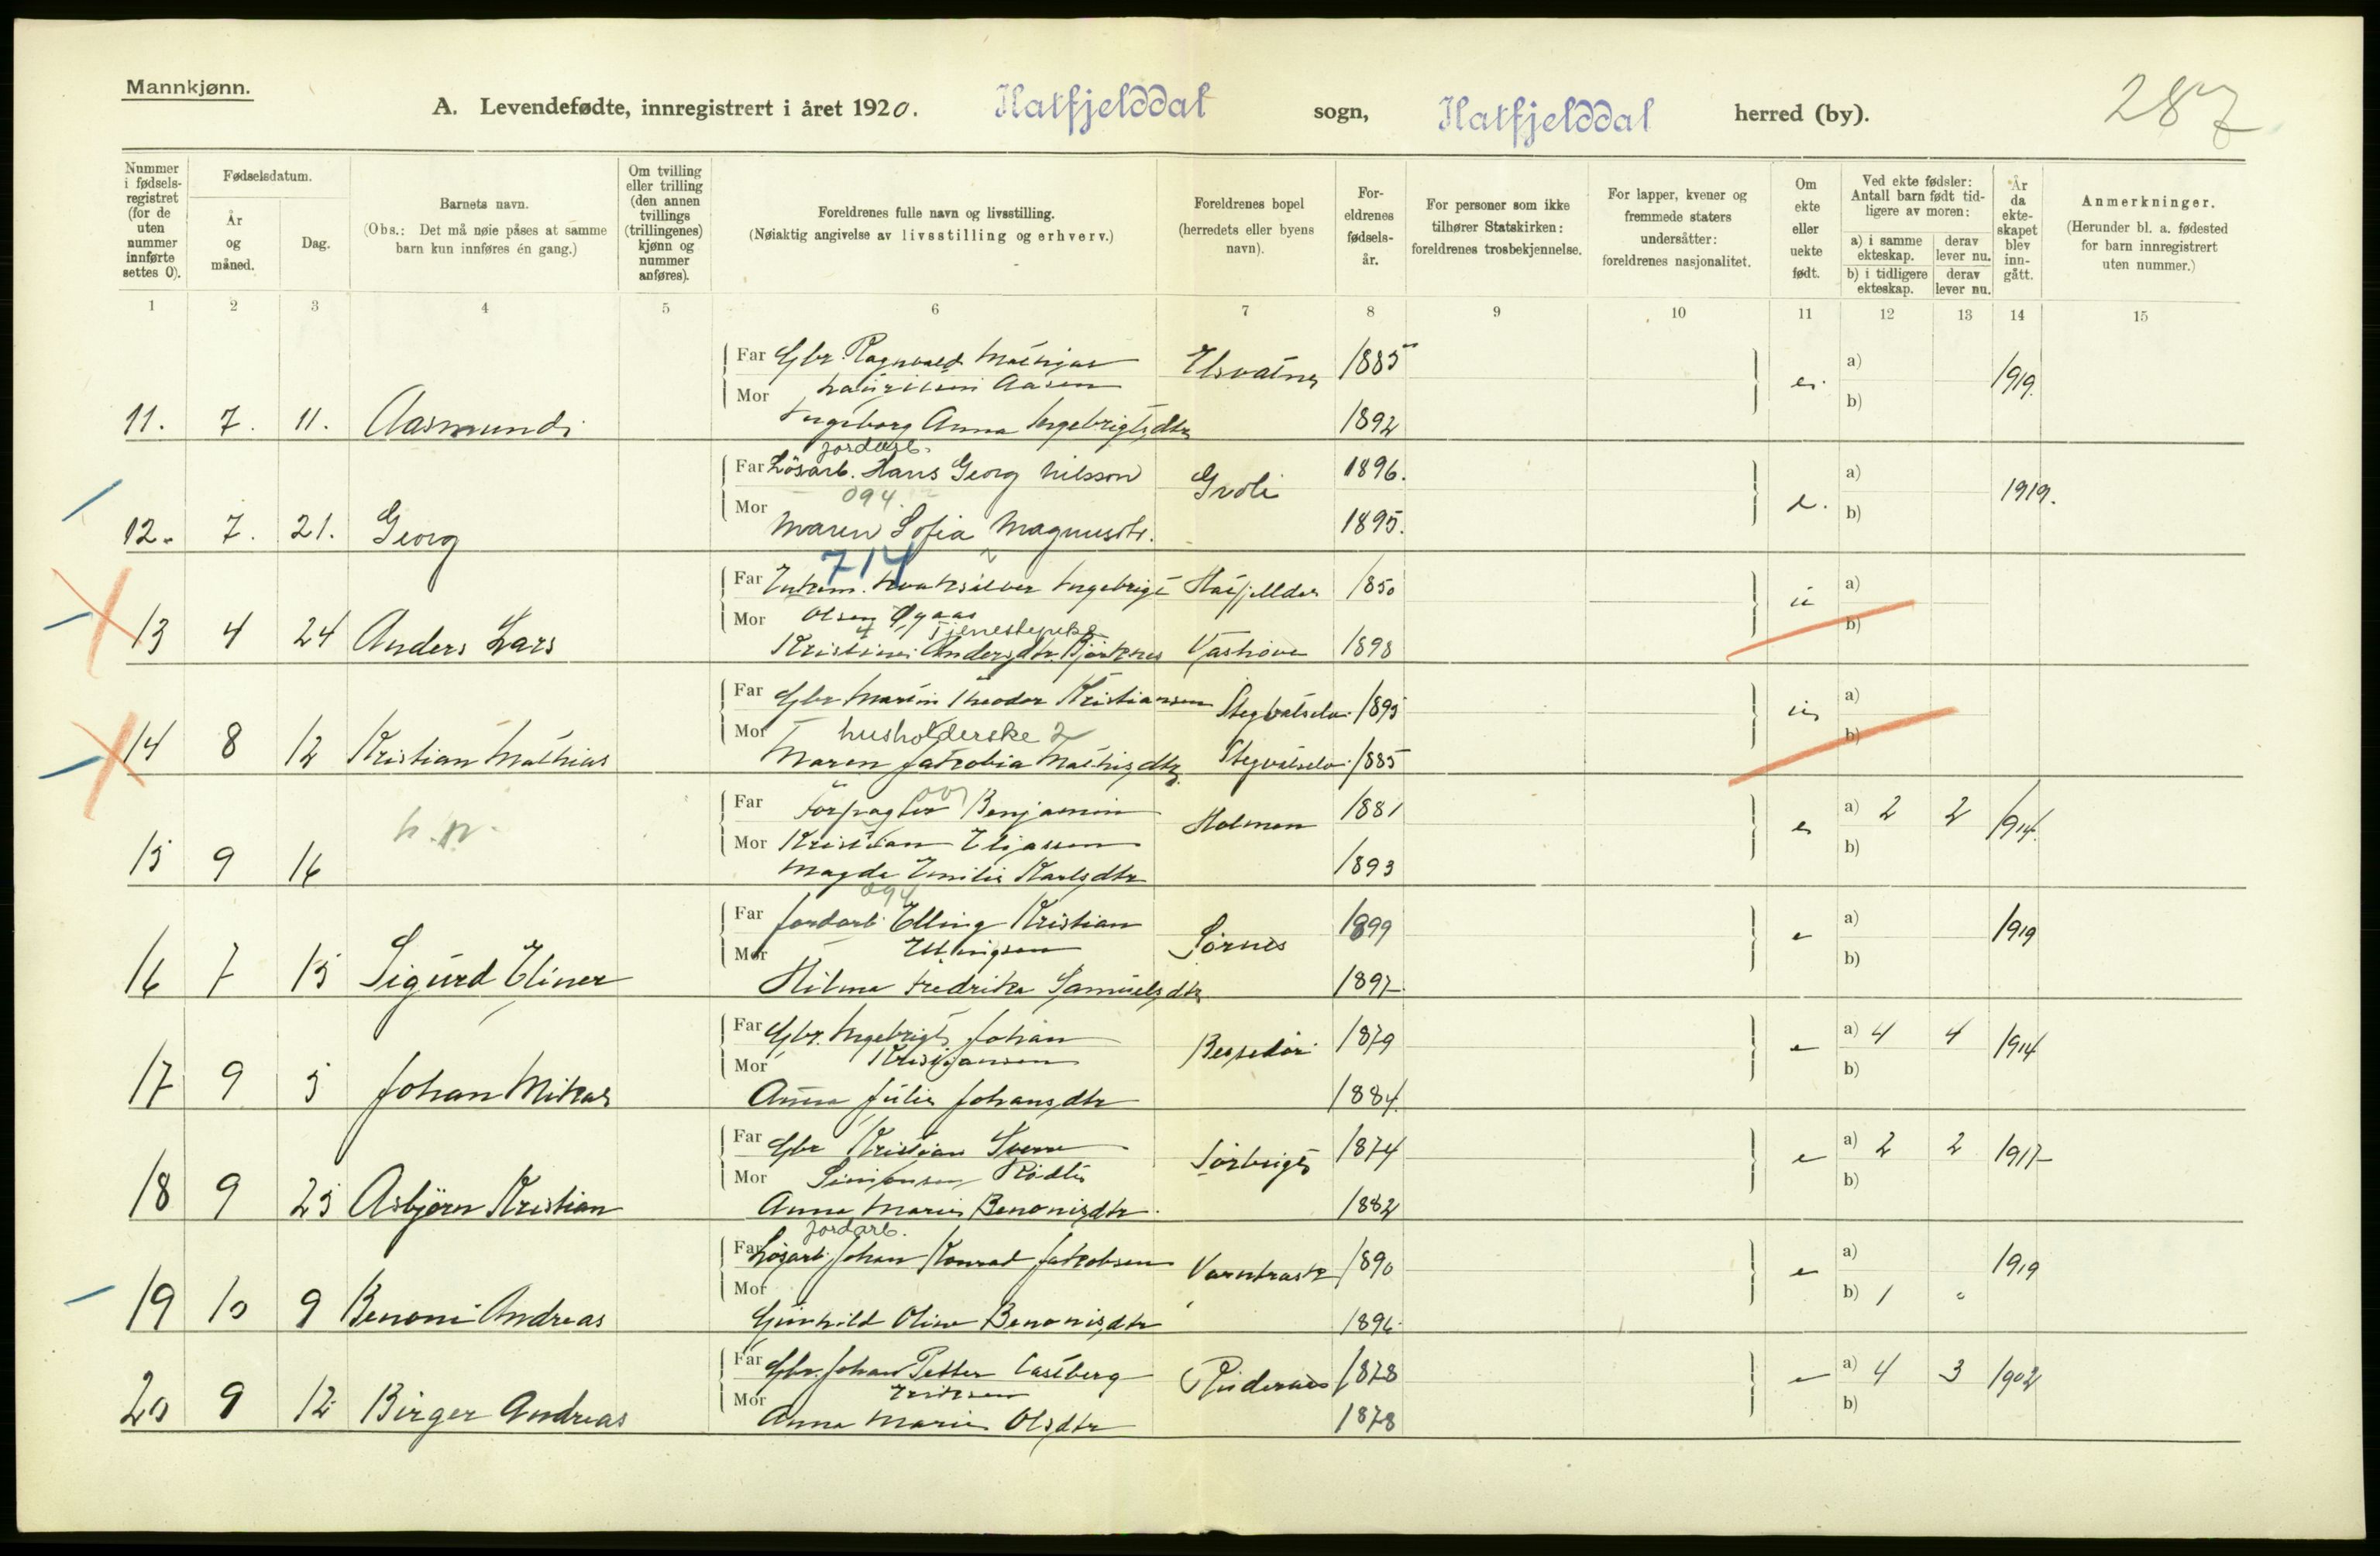 Mannkjønn.
A. Levendefødte, innregistrert i året 1920. Hatfjelddal sogn, Hatfjelddal herred (by). 287
Nummer i fødselsregistret (for de uten nummer innførte settes 0).
Fødselsdatum.
År og måned.
Dag.
Barnets navn.
(Obs.: Det må nøie påses at samme barn kun innføres én gang.)
Om tvilling eller trilling (den annen tvillings (trillingenes) kjønn og nummer anføres).
Foreldrenes fulle navn og livsstilling.
(Nøiaktig angivelse av livsstilling og erhverv.)
Foreldrenes bopel
(herredets eller byens navn).
Foreldrenes fødselsår.
For personer som ikke tilhører Statskirken: foreldrenes trosbekjennelse.
For lapper, kvener og fremmede staters undersåtter: foreldrenes nasjonalitet.
Om ekte eller uekte født.
Ved ekte fødsler: Antall barn født tidligere av moren:
a) i samme ekteskap. derav lever nu.
b) i tidligere ekteskap. derav lever nu.
År da ekteskapet blev inngått.
Anmerkninger.
(Herunder bl. a. fødested for barn innregistrert uten nummer.)
1 2 3 4 5 6 7 8 9 10 11 12 13 14 15
Far Gbr. Ragnvald Mathias 1885 a)
Mor Lauritsen Aasen b) 1919.
11. 7. 11. Aasmund Ingeborg Anna Ingebrigtsdtr 1892
jordarb.
Far Løsarb. Hans Georg Nilsson Grøli 1896. a)
Mor 094 e. b) 1919.
12. 7. 21. Georg Maren Sofia Magnusdtr. 1895.
714
Far Ingebrigt 1850 a)
Mor Olsen b)
Tjenestepike
13 4 24 Anders Lars Kristine Andersdtr. 1898
Far Gbr Martin Theodor Kristiansen 1895 a)
Mor husholderske 2 b)
14 8 12 Kristian Mathias Maren Jakobia Mathisdtr. 1885
Far Forpagter Benjamin Holmen 1881 a) 2 2 1914.
Mor Kristian Eliassen b)
15 9 16 Magda Emilie Karlsdtr 1893
094
Far Jordarb. Elling Kristian 1899 a) 1919
Mor Ellingsen Sørnes e b)
16 7 15 Sigurd Eliner Hilma Fredrika Samuelsdtr 1897
Far Gbr. Ingebrigt Johan 1879 a) 4 4 1914
Mor Kristiansen e b)
17 9 5 Johan Mikal Anna Julie Johansdtr 1884.
Far Gbr Kristian Sverre 1874 a) 2 2 1917
Mor Simonsen e b)
18 9 25 Asbjørn Kristian Anna Marie Benonisdtr 1882
jordarb.
Far Løsarb. Johan Konrad Jakobsen 1890 a) 1919
Mor e b) 1
19 10 9 Benoni Andreas Gunhild Oline Benonisdtr 1896
Far Gbr. Johan Petter Castberg 1878 a) 4 3 1902
Mor Eriksen b)
20 9 12 Birger Andreas Anna Marie Olsdtr 1878